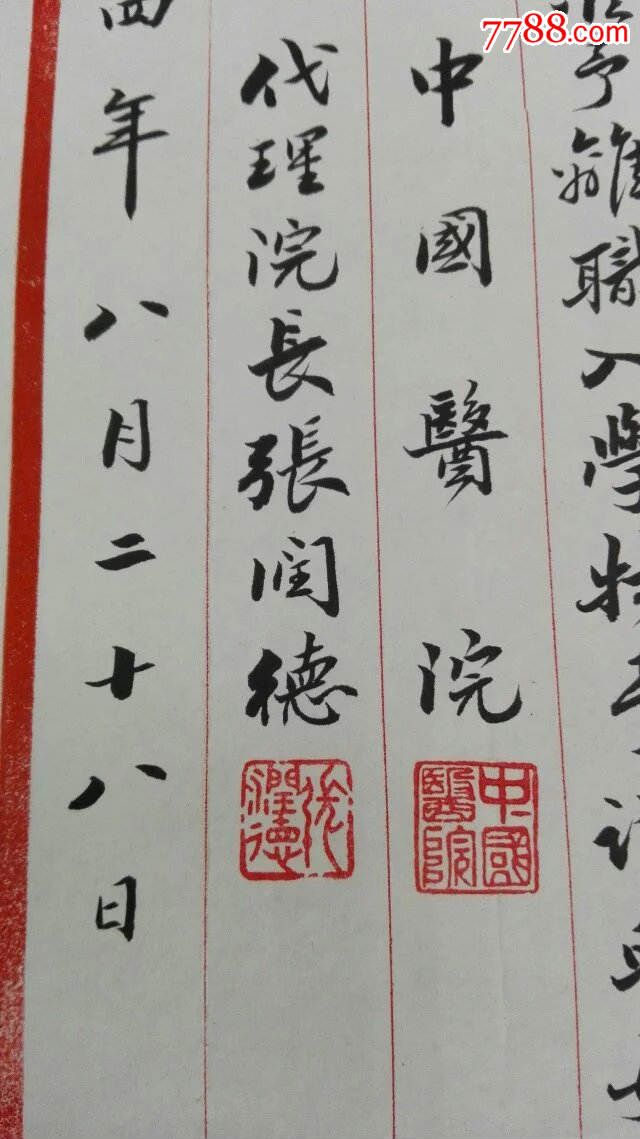 7788.com
予離職入學
中國醫院
代理院長張润德
四年八月二十八日
中國醫院
張潤德